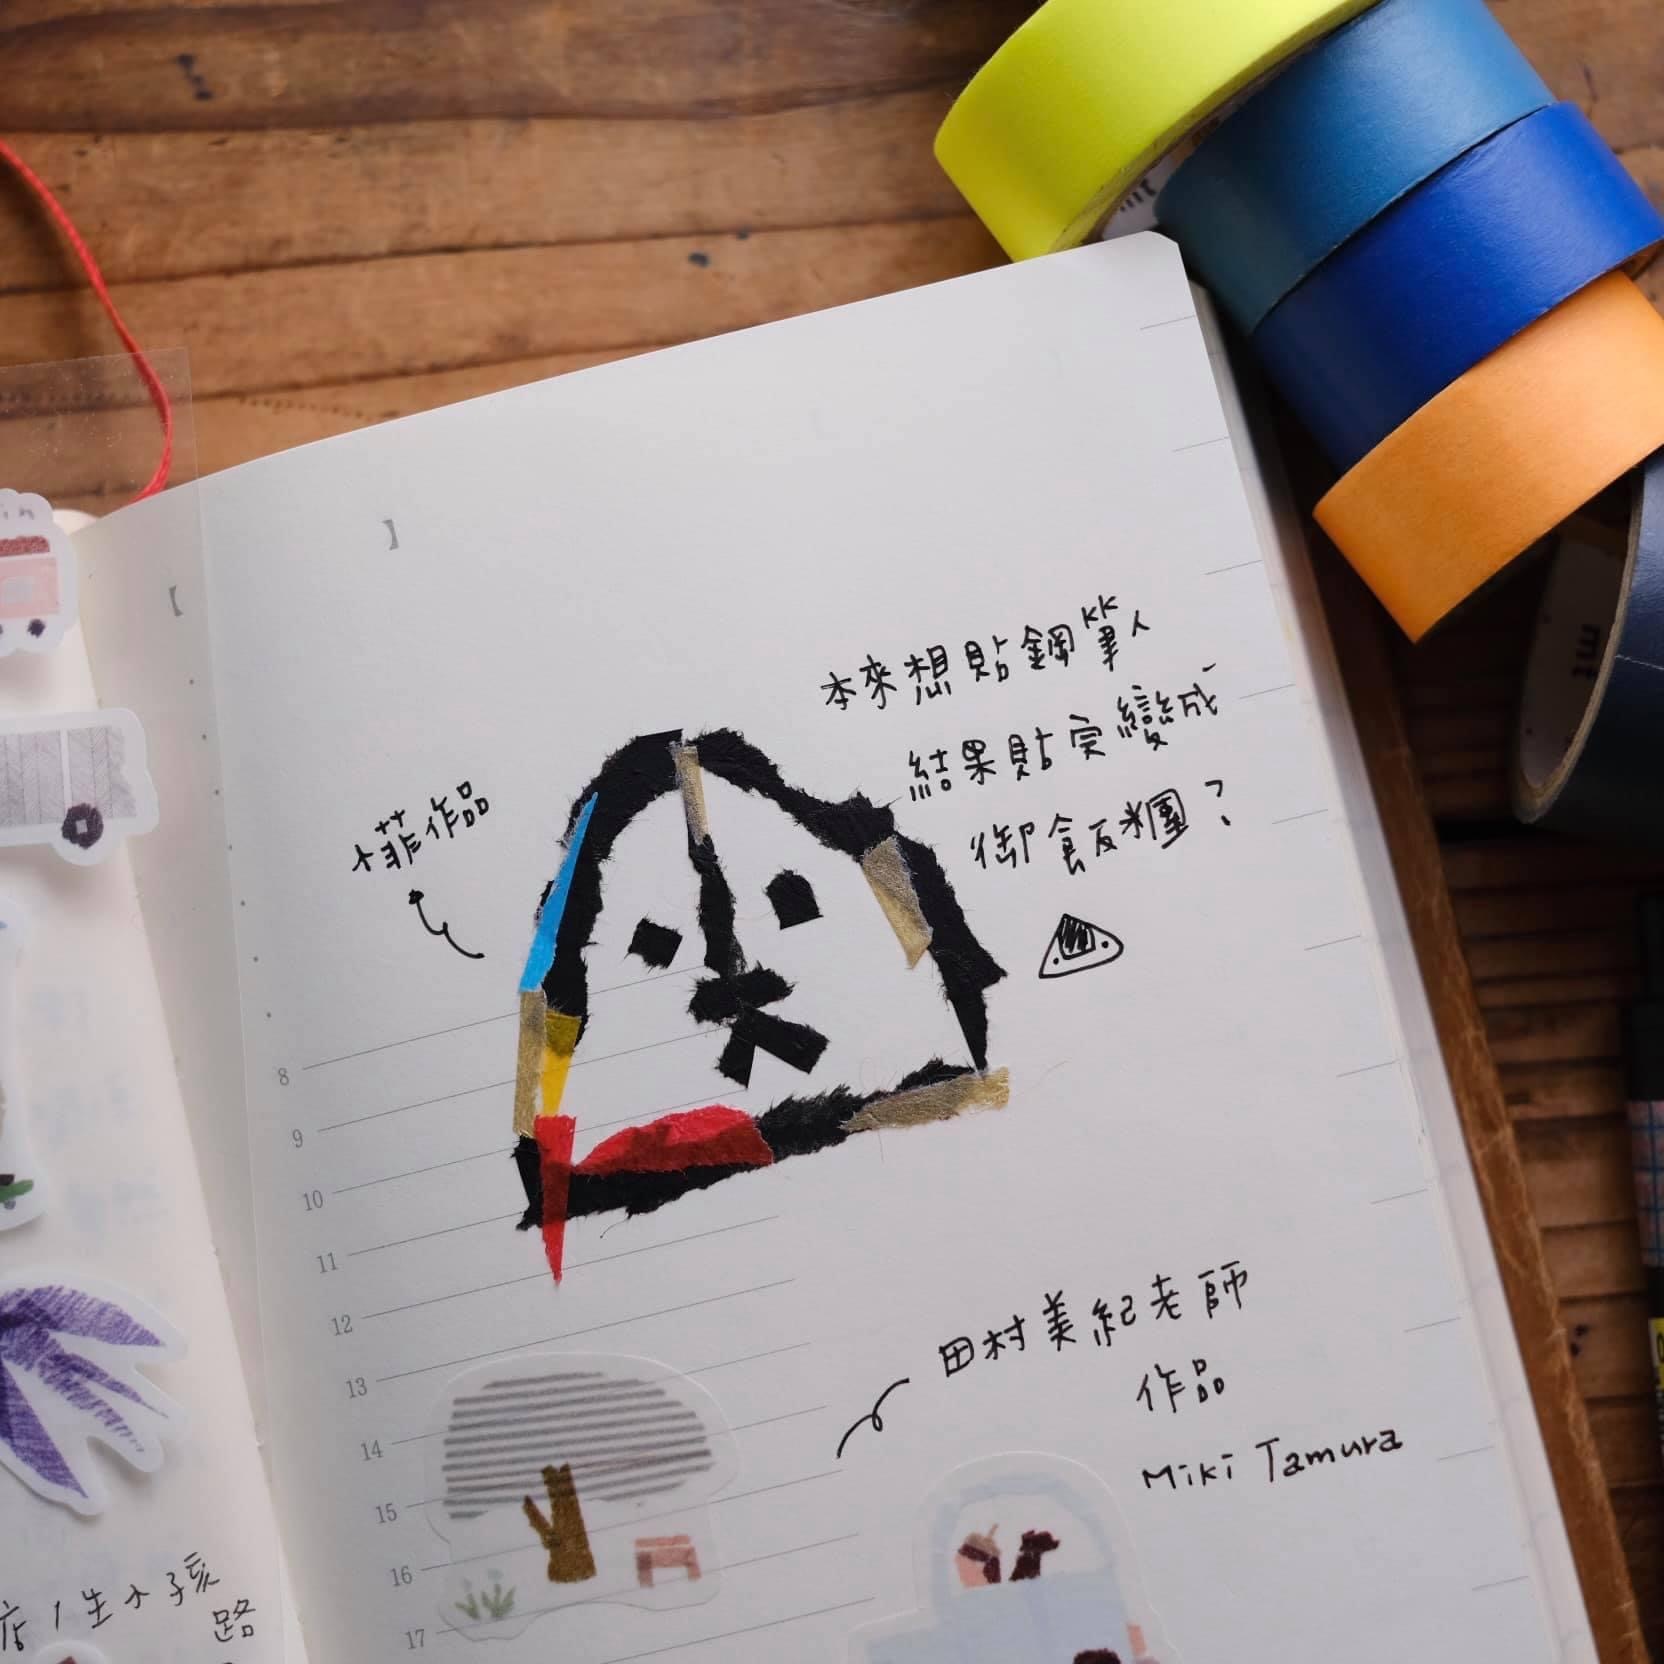 本來想貼鋼筆人
結果貼完變成
御飯糰？
小菲作品
8
9
10
11
12
13
14
15
16
17
田村美紀老師
作品
Miki Tamura
店/生小孩
路
mt